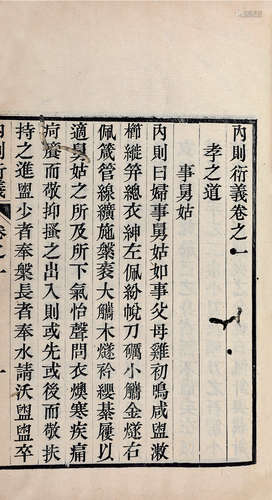 內則衍義卷之一
孝之道
事舅姑
內則曰婦事舅姑如事父母雞初鳴咸盥漱
櫛縰笄總衣紳左佩紛帨刀礪小觿金燧右
佩箴管線纊施縏袠大觿木燧衿纓綦屨以
適舅姑之所及所下氣怡聲問衣燠寒疾痛
疴癢而敬抑搔之出入則或先或後而敬扶
持之進盥少者奉槃長者奉水請沃盥盥卒
內則衍義
卷之一
一